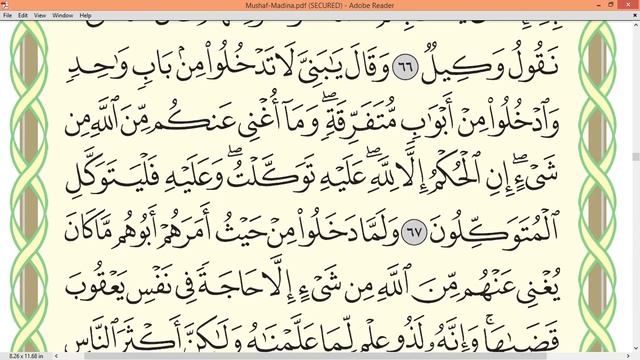 Mushaf-Madina.pdf (SECURED) - Adobe Reader
File Edit View Window Help
نَقُولُ وَكِيلٌ ٦٦ وَقَالَ يَٰبَنِيَّ لَا تَدْخُلُوا۟ مِنۢ بَابٍ وَٰحِدٍ
وَٱدْخُلُوا۟ مِنْ أَبْوَٰبٍ مُّتَفَرِّقَةٍ ۖ وَمَآ أُغْنِى عَنكُم مِّنَ ٱللَّهِ مِن
شَىْءٍ ۖ إِنِ ٱلْحُكْمُ إِلَّا لِلَّهِ ۖ عَلَيْهِ تَوَكَّلْتُ ۖ وَعَلَيْهِ فَلْيَتَوَكَّلِ
ٱلْمُتَوَكِّلُونَ ٦٧ وَلَمَّا دَخَلُوا۟ مِنْ حَيْثُ أَمَرَهُمْ أَبُوهُم مَّا كَانَ
يُغْنِى عَنْهُم مِّنَ ٱللَّهِ مِن شَىْءٍ إِلَّا حَاجَةً فِى نَفْسِ يَعْقُوبَ
قَضَىٰهَا ۚ وَإِنَّهُۥ لَذُو عِلْمٍ لِّمَا عَلَّمْنَٰهُ وَلَٰكِنَّ أَكْثَرَ ٱلنَّاسِ
8.26 x 11.68 in